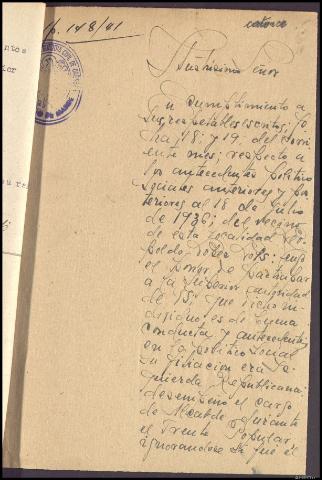 catorce
148/41
Ilustrisimo Señor
En cumplimiento a
sus respetables escritos, fe-
cha 18 y 19 del corri-
ente mes; respecto a
los antecedentes politico
sociales anteriores y pos-
teriores al 18 de Julio
de 1936; del vecino
de esta localidad Leo-
poldo
el honor de participar
a la Superior autoridad
de VSI, que dicho in-
dividuo es de buena
conducta y antecedentes
en lo politico social
su filiacion era Iz-
quierda Republicana;
desempeño el cargo
de Alcalde durante
el Frente Popular
ignorandose si fue el